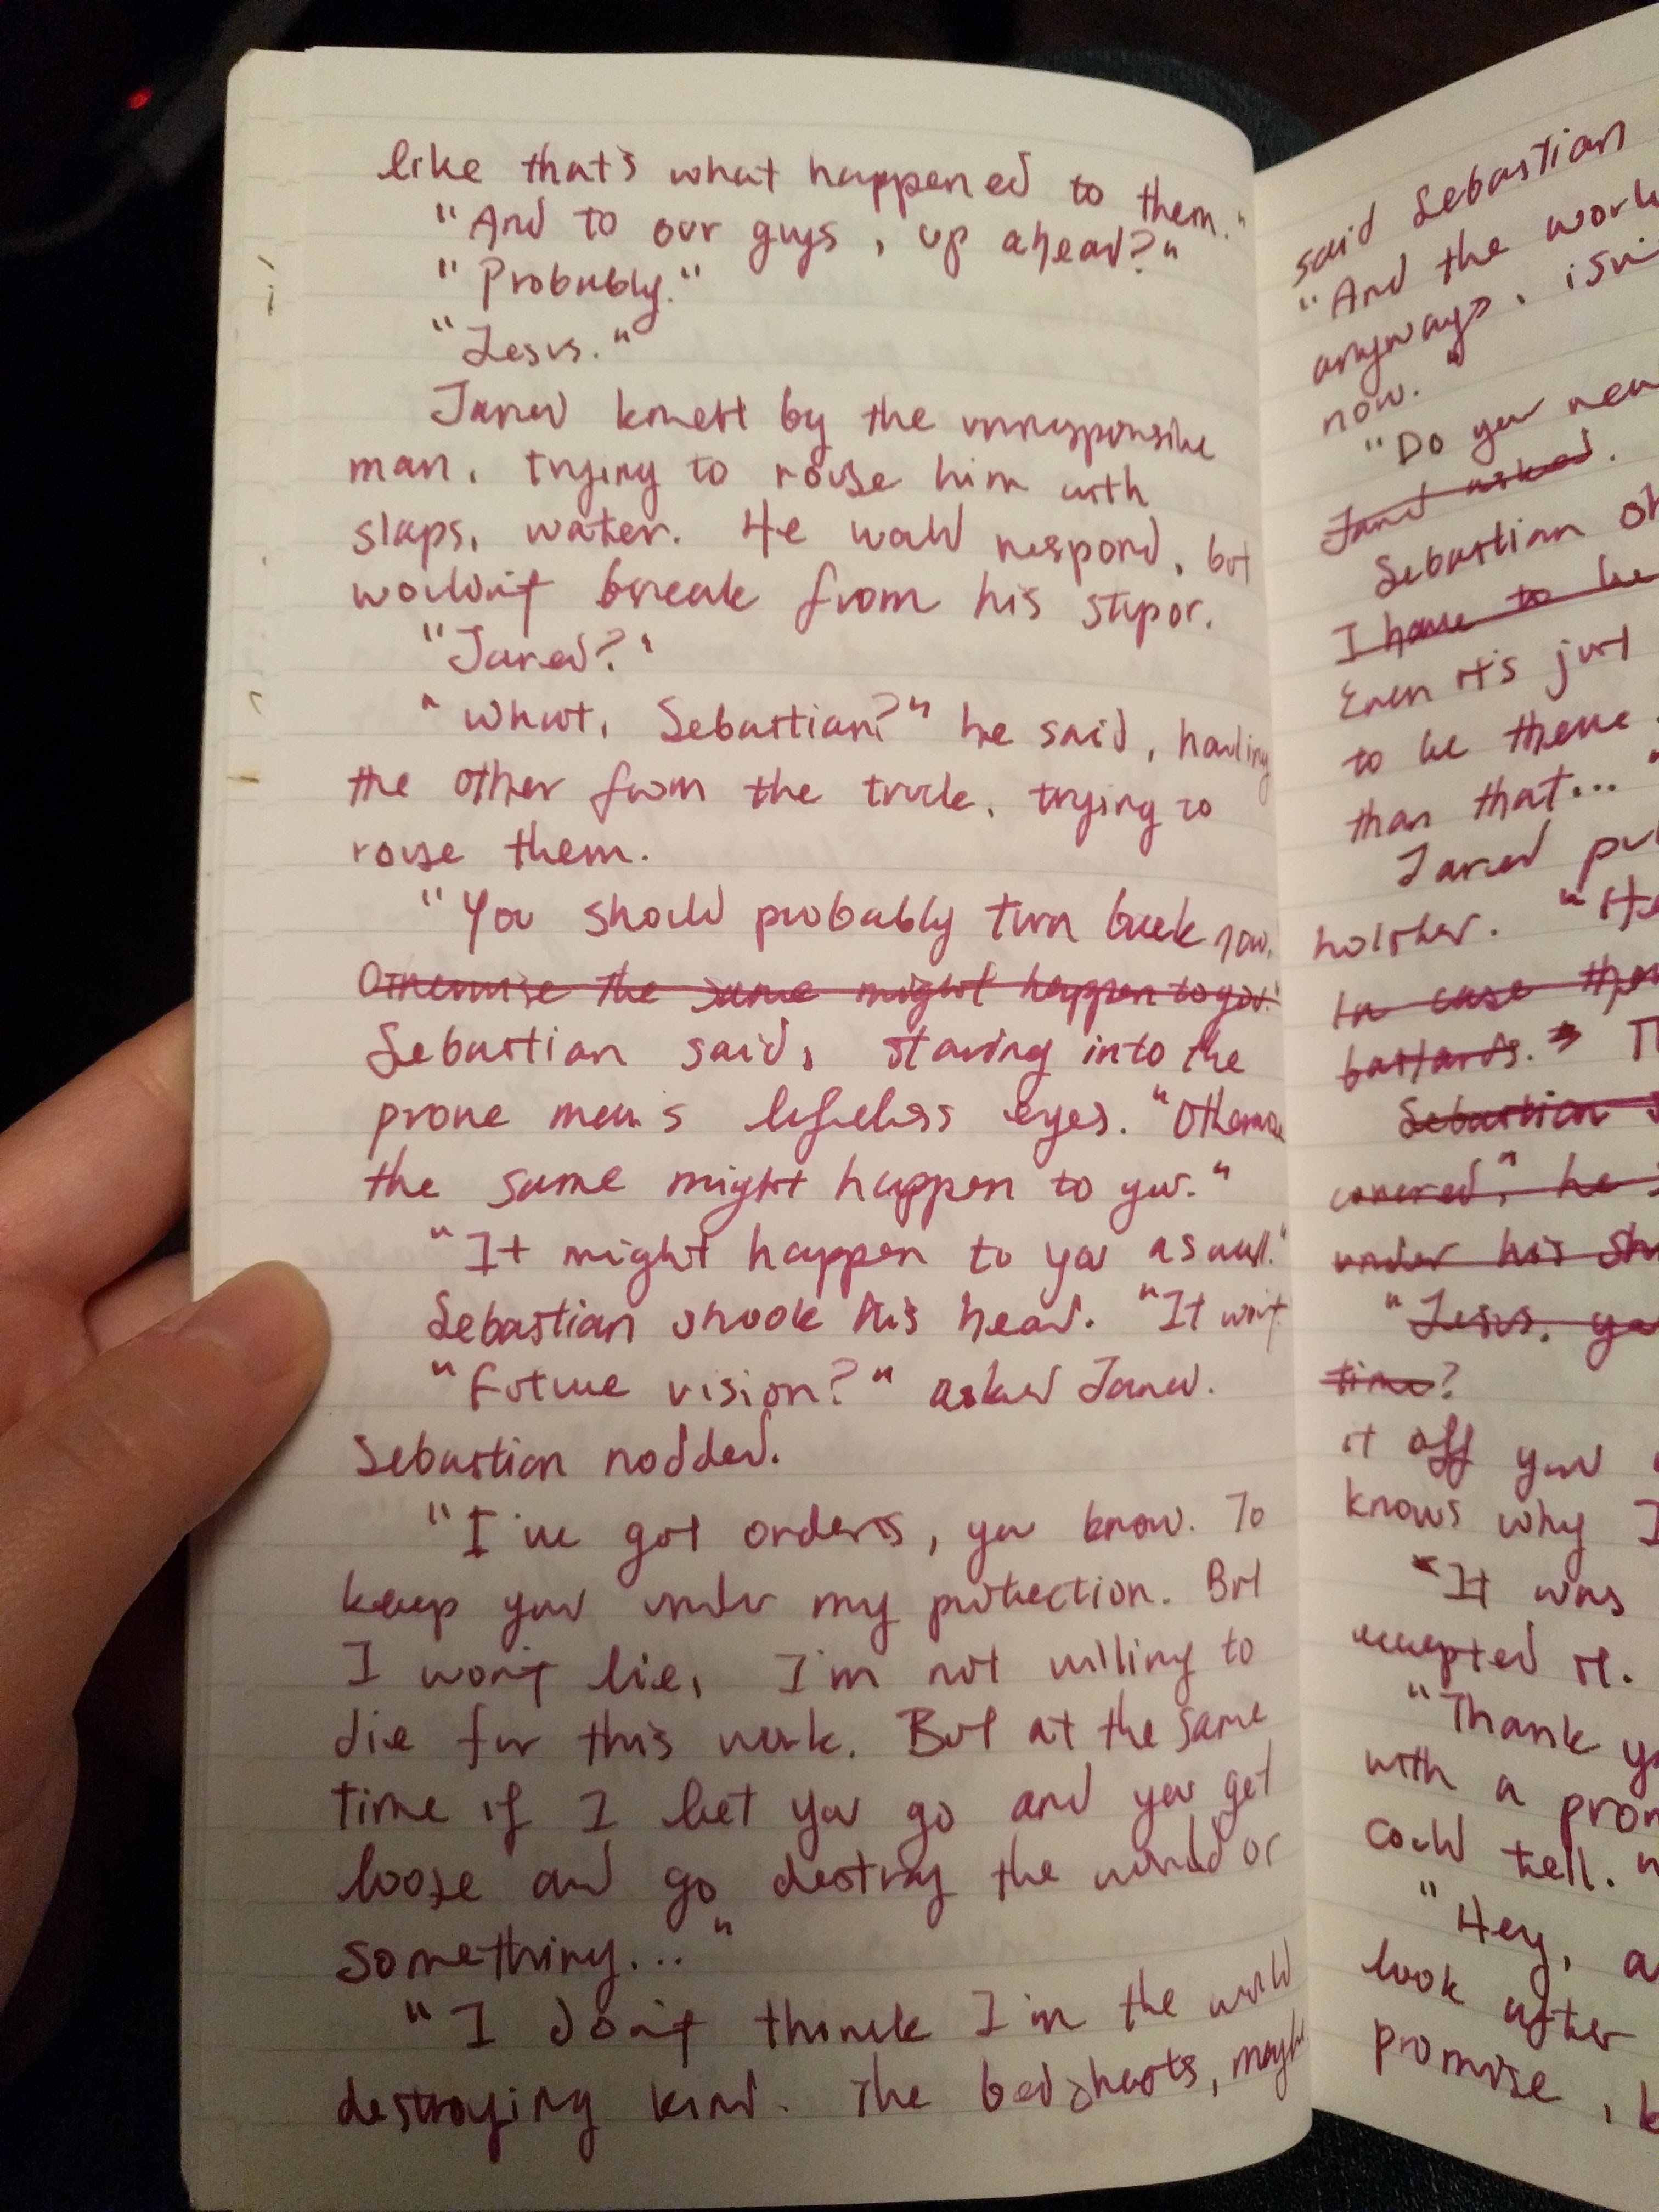 like that's what happened to them."
"And to our guys, up ahead?"
"Probably."
"Jesus."
Jared knelt by the unresponsive
man, trying to rouse him with
slaps, water. He would respond, but
wouldn't break from his stupor.
"Jared?"
"What, Sebastian?" he said, hauling
the other from the truck, trying to
rouse them.
"You should probably turn back now.
Otherwise the same might happen to you."
Sebastian said, staring into the
prone man's lifeless eyes. "Otherwise
the same might happen to you."
"It might happen to you as well."
Sebastian shook his head. "It won't
"Future vision?" asked Jared.
Sebastian nodded.
"I've got orders, you know. To
keep you under my protection. But
I won't lie, I'm not willing to
die for this work. But at the same
time if I let you go and you get
loose and go destroy the world or
something..."
"I don't think I'm the world
destroying kind. The maybe
said Sebastian
"And the
anyways, isn't
now."
"Do you
Jared asked.
Sebastian
I have to be
Even it's just
to be there
than that..."
Jared
holster.
In case
bastards. T
Sebastian
covered," he
under his
"Jesus,
time?
it off your
knows why I
"It was
accepted it.
"Thank
with a
could tell.
"Hey, a
look after
promise,